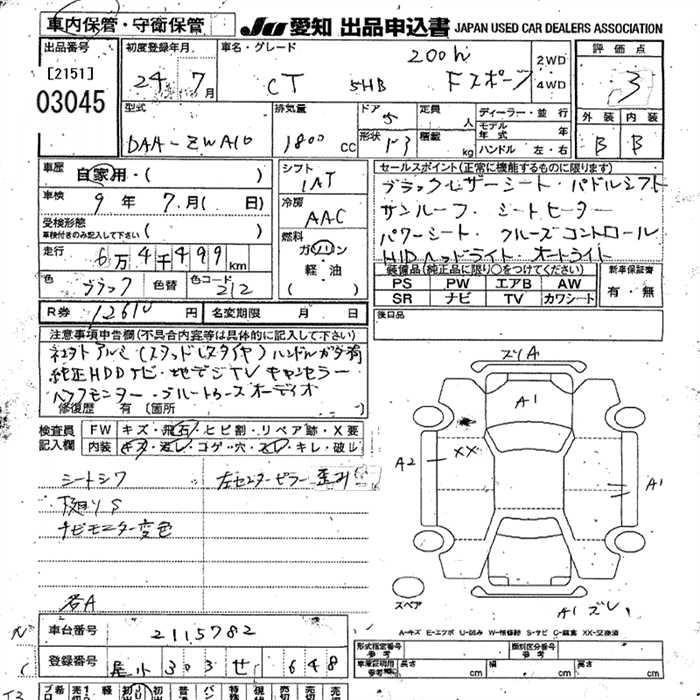 車内保管・守衛保管
JU 愛知 出品申込書 JAPAN USED CAR DEALERS ASSOCIATION
出品番号
[2151]
03045
初度登録年月
24年 7月
車名・グレード
CT 5HB 200h Fスポーツ
2WD
4WD
評価点
3
外装 内装
B B
型式
DAA-ZWA10
排気量
1800 CC
ドア 5
形状
定員 人
積載 kg
ディーラー・並行
モデル年式 年
ハンドル 左・右
車歴
自家用・( )
車検
9年 7月( 日)
受検形態
車検付きのみ記入して下さい ( )
走行
6万4千499 km
色 ブラック 色替 色コード 212
シフト
IAT
冷房
AAC
燃料
ガソリン
軽油
( )
セールスポイント(正常に機能するものに限ります)
ブラックレザーシート・パドルシフト
サンルーフ・シートヒーター
パワーシート・クルーズコントロール
HIDヘッドライト・オートライト
装備品(純正品に限り○をつけてください)
PS PW エアB AW
SR ナビ TV カワシート
新車保証書
有・無
R券 12610円 名変期限 月 日
後日品
注意事項申告欄(不具合内容等は具体的に記入して下さい)
純正HDDナビ・地デジTVキャンセラー
バックモニター・ブルートゥースオーディオ
修復歴 有 〔箇所
検査員記入欄
FW キズ・飛石・ヒビ割・リペア跡・X要
内装 キズ・汚レ・コゲ・穴・スレ・キレ・破レ
シートシワ
左センターピラー歪み
下廻りS
ナビモニター変色
名A
ズリA
A1
A2
XX
A1
A1 ズレ
スペア
A-キズ E-エクボ U-凹み W-補修跡 S-サビ C-腐食 XX-交換済
車台番号
2115782
登録番号
尾小 303 せ 648
型式指定番号 参考
類別区分番号 参考
車庫証明用 参考 長さ cm 幅 cm 高さ cm